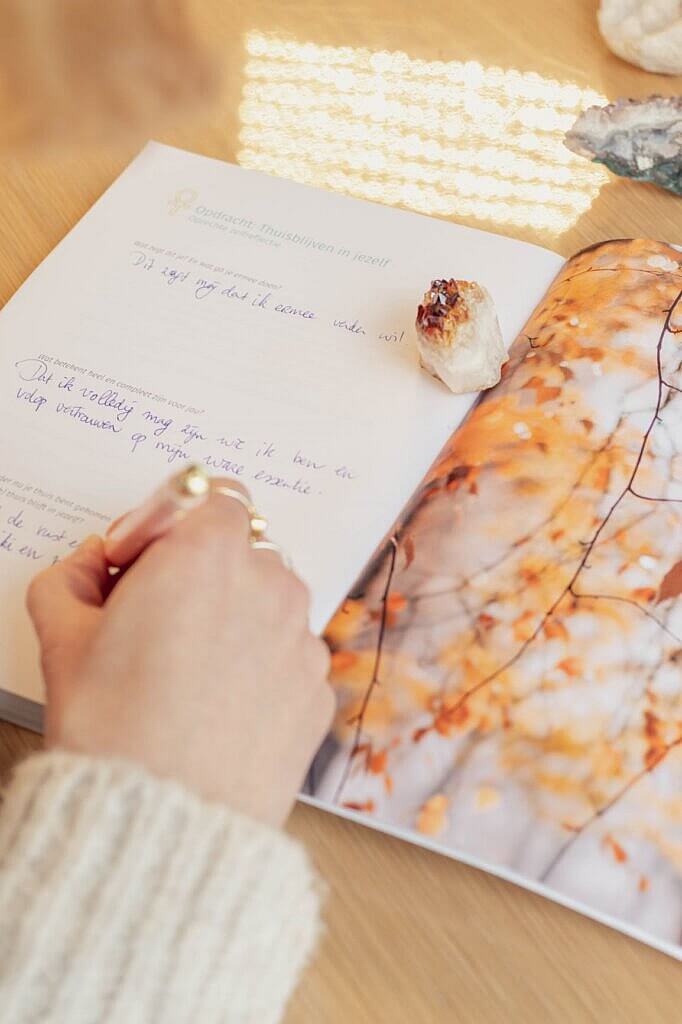 Opdracht: Thuisblijven in jezelf
Oprechte zelfreflectie
Wat zegt dit jou en wat ga je ermee doen?
Dit zegt mij dat ik ermee verder wil
Wat betekent heel en compleet zijn voor jou?
Dat ik volledig mag zijn wie ik ben en
volop vertrouwen op mijn ware essentie.
nu je thuis bent gekomen
thuis blijft in jezelf?
de rust
en